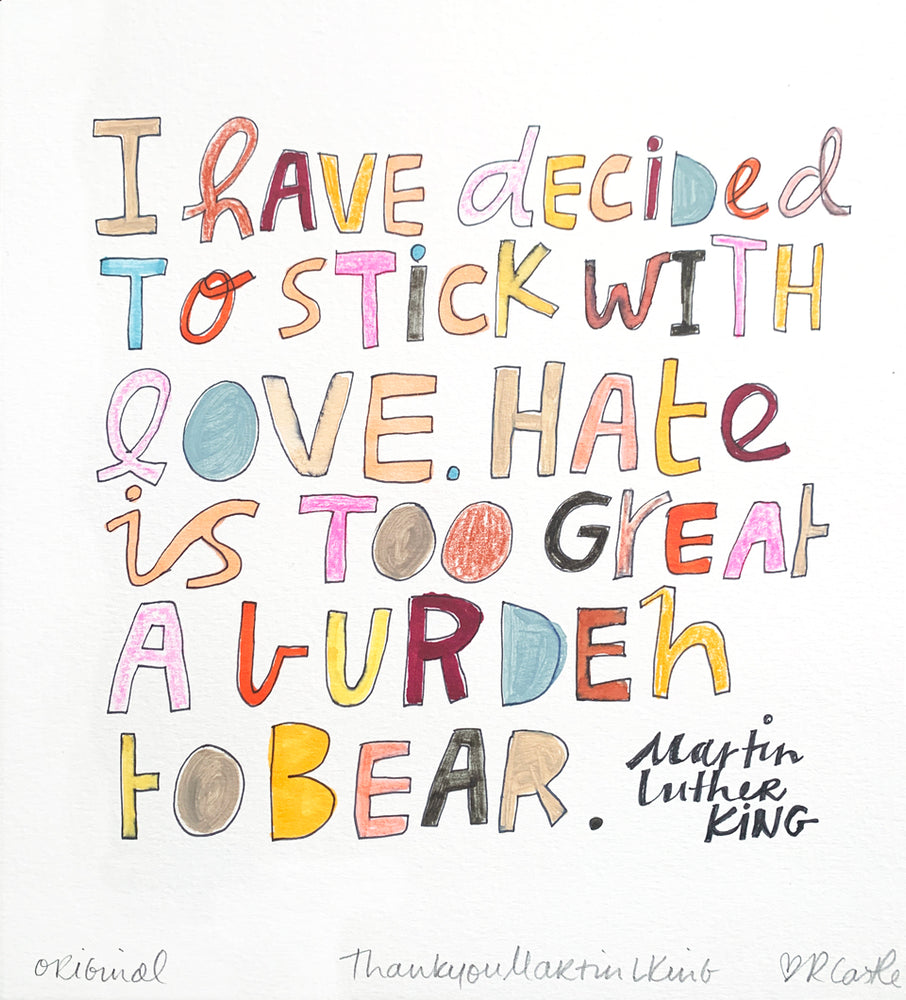 I have decided
TO STiCK WITH
love. Hate
is TOO GreAt
A bURDEn
to BEAR.
Martin
Luther
KiNG
original
Thankyou Martin L King
♡ R Castle